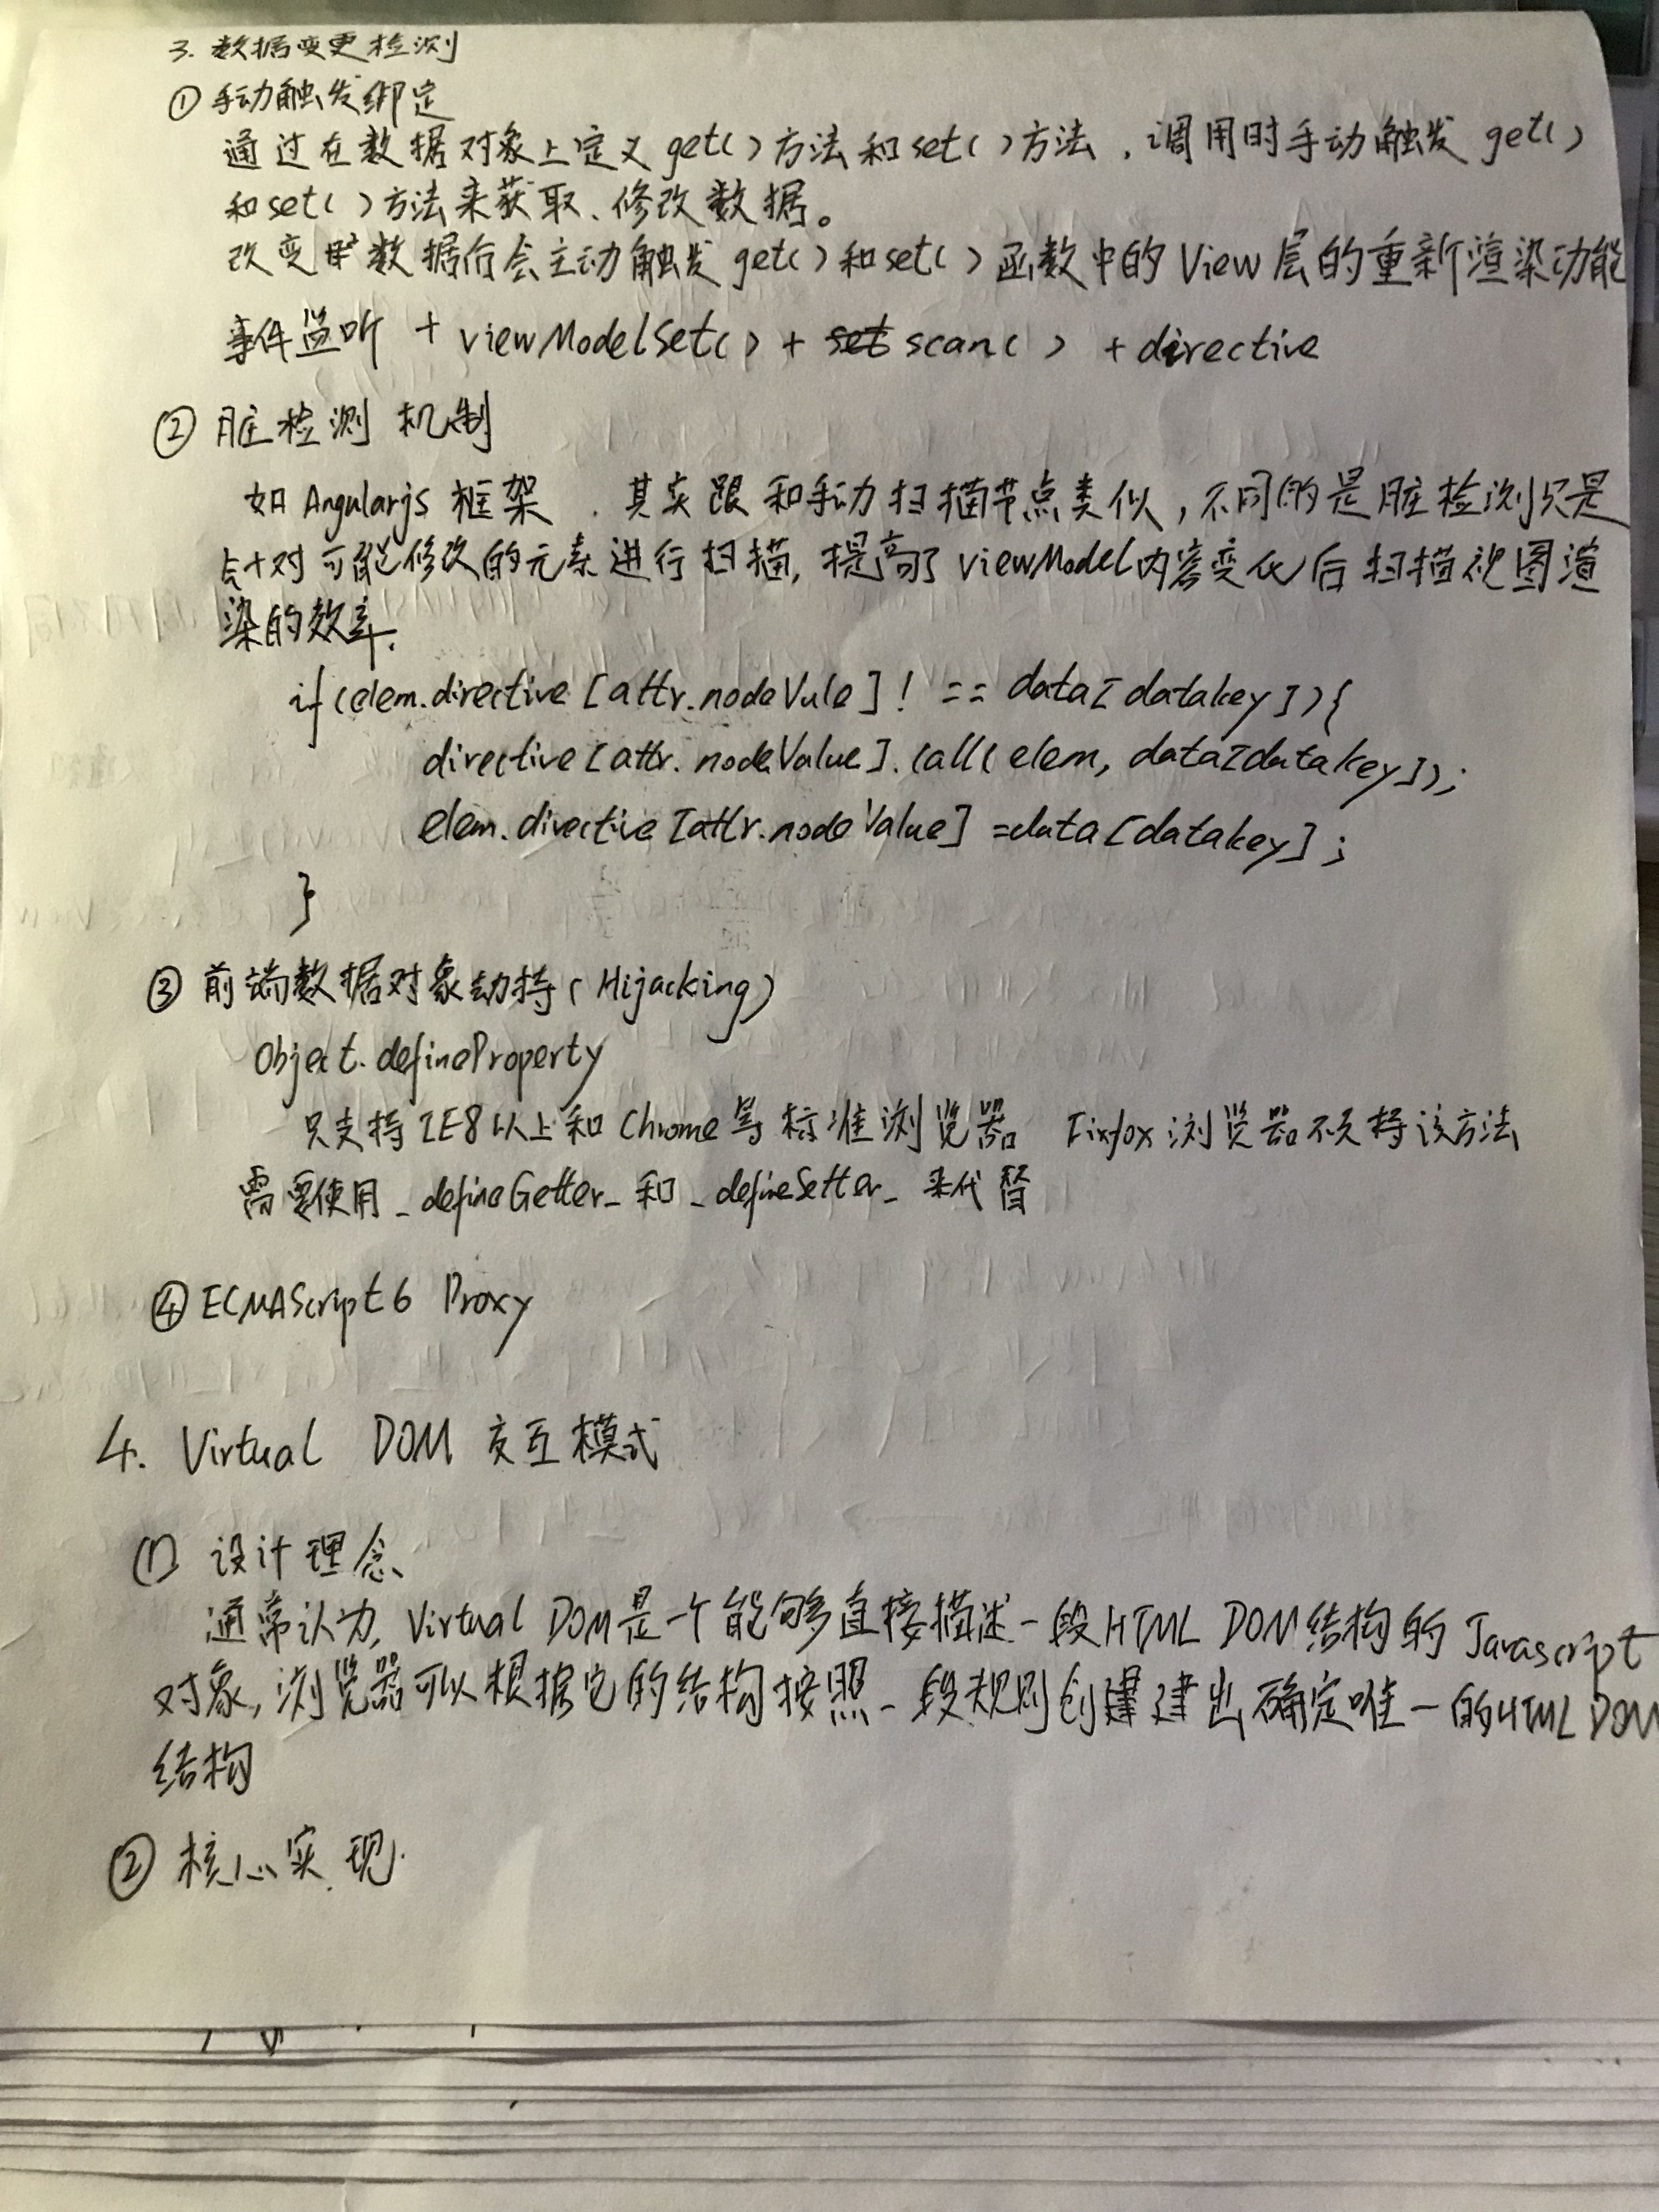 3. 数据变更检测
① 手动触发绑定
通过在数据对象上定义 get()方法和set()方法，调用时手动触发 get()
和set()方法来获取、修改数据。
改变数据后会主动触发 get()和set()函数中的View层的重新渲染功能
事件监听 + viewModelSet() + scan() + directive
② 脏检测 机制
如Angularjs 框架，其实跟和手动扫描节点类似，不同的是脏检测只是
针对可能修改的元素进行扫描，提高了viewModel内容变化后扫描视图渲
染的效率.
if(elem.directive[attr.nodeVule]! == data[datakey]){
directive[attr.nodeValue].call(elem, data[datakey]);
elem.directive[attr.nodeValue] =data[datakey];
}
③ 前端数据对象劫持(Hijacking)
Object.defineProperty
只支持IE8以上和Chrome等标准浏览器 浏览器不支持该方法
需要使用_defineGetter_和_defineSetter_来代替
④ ECMAScript6 Proxy
4. Virtual DOM 交互模式
① 设计理念
通常认为，Virtual DOM是一个能够直接描述一段HTML DOM结构的Javascript
对象，浏览器可以根据它的结构按照一段规则创建建出确定唯一的HTML DOM
结构
② 核心实现.